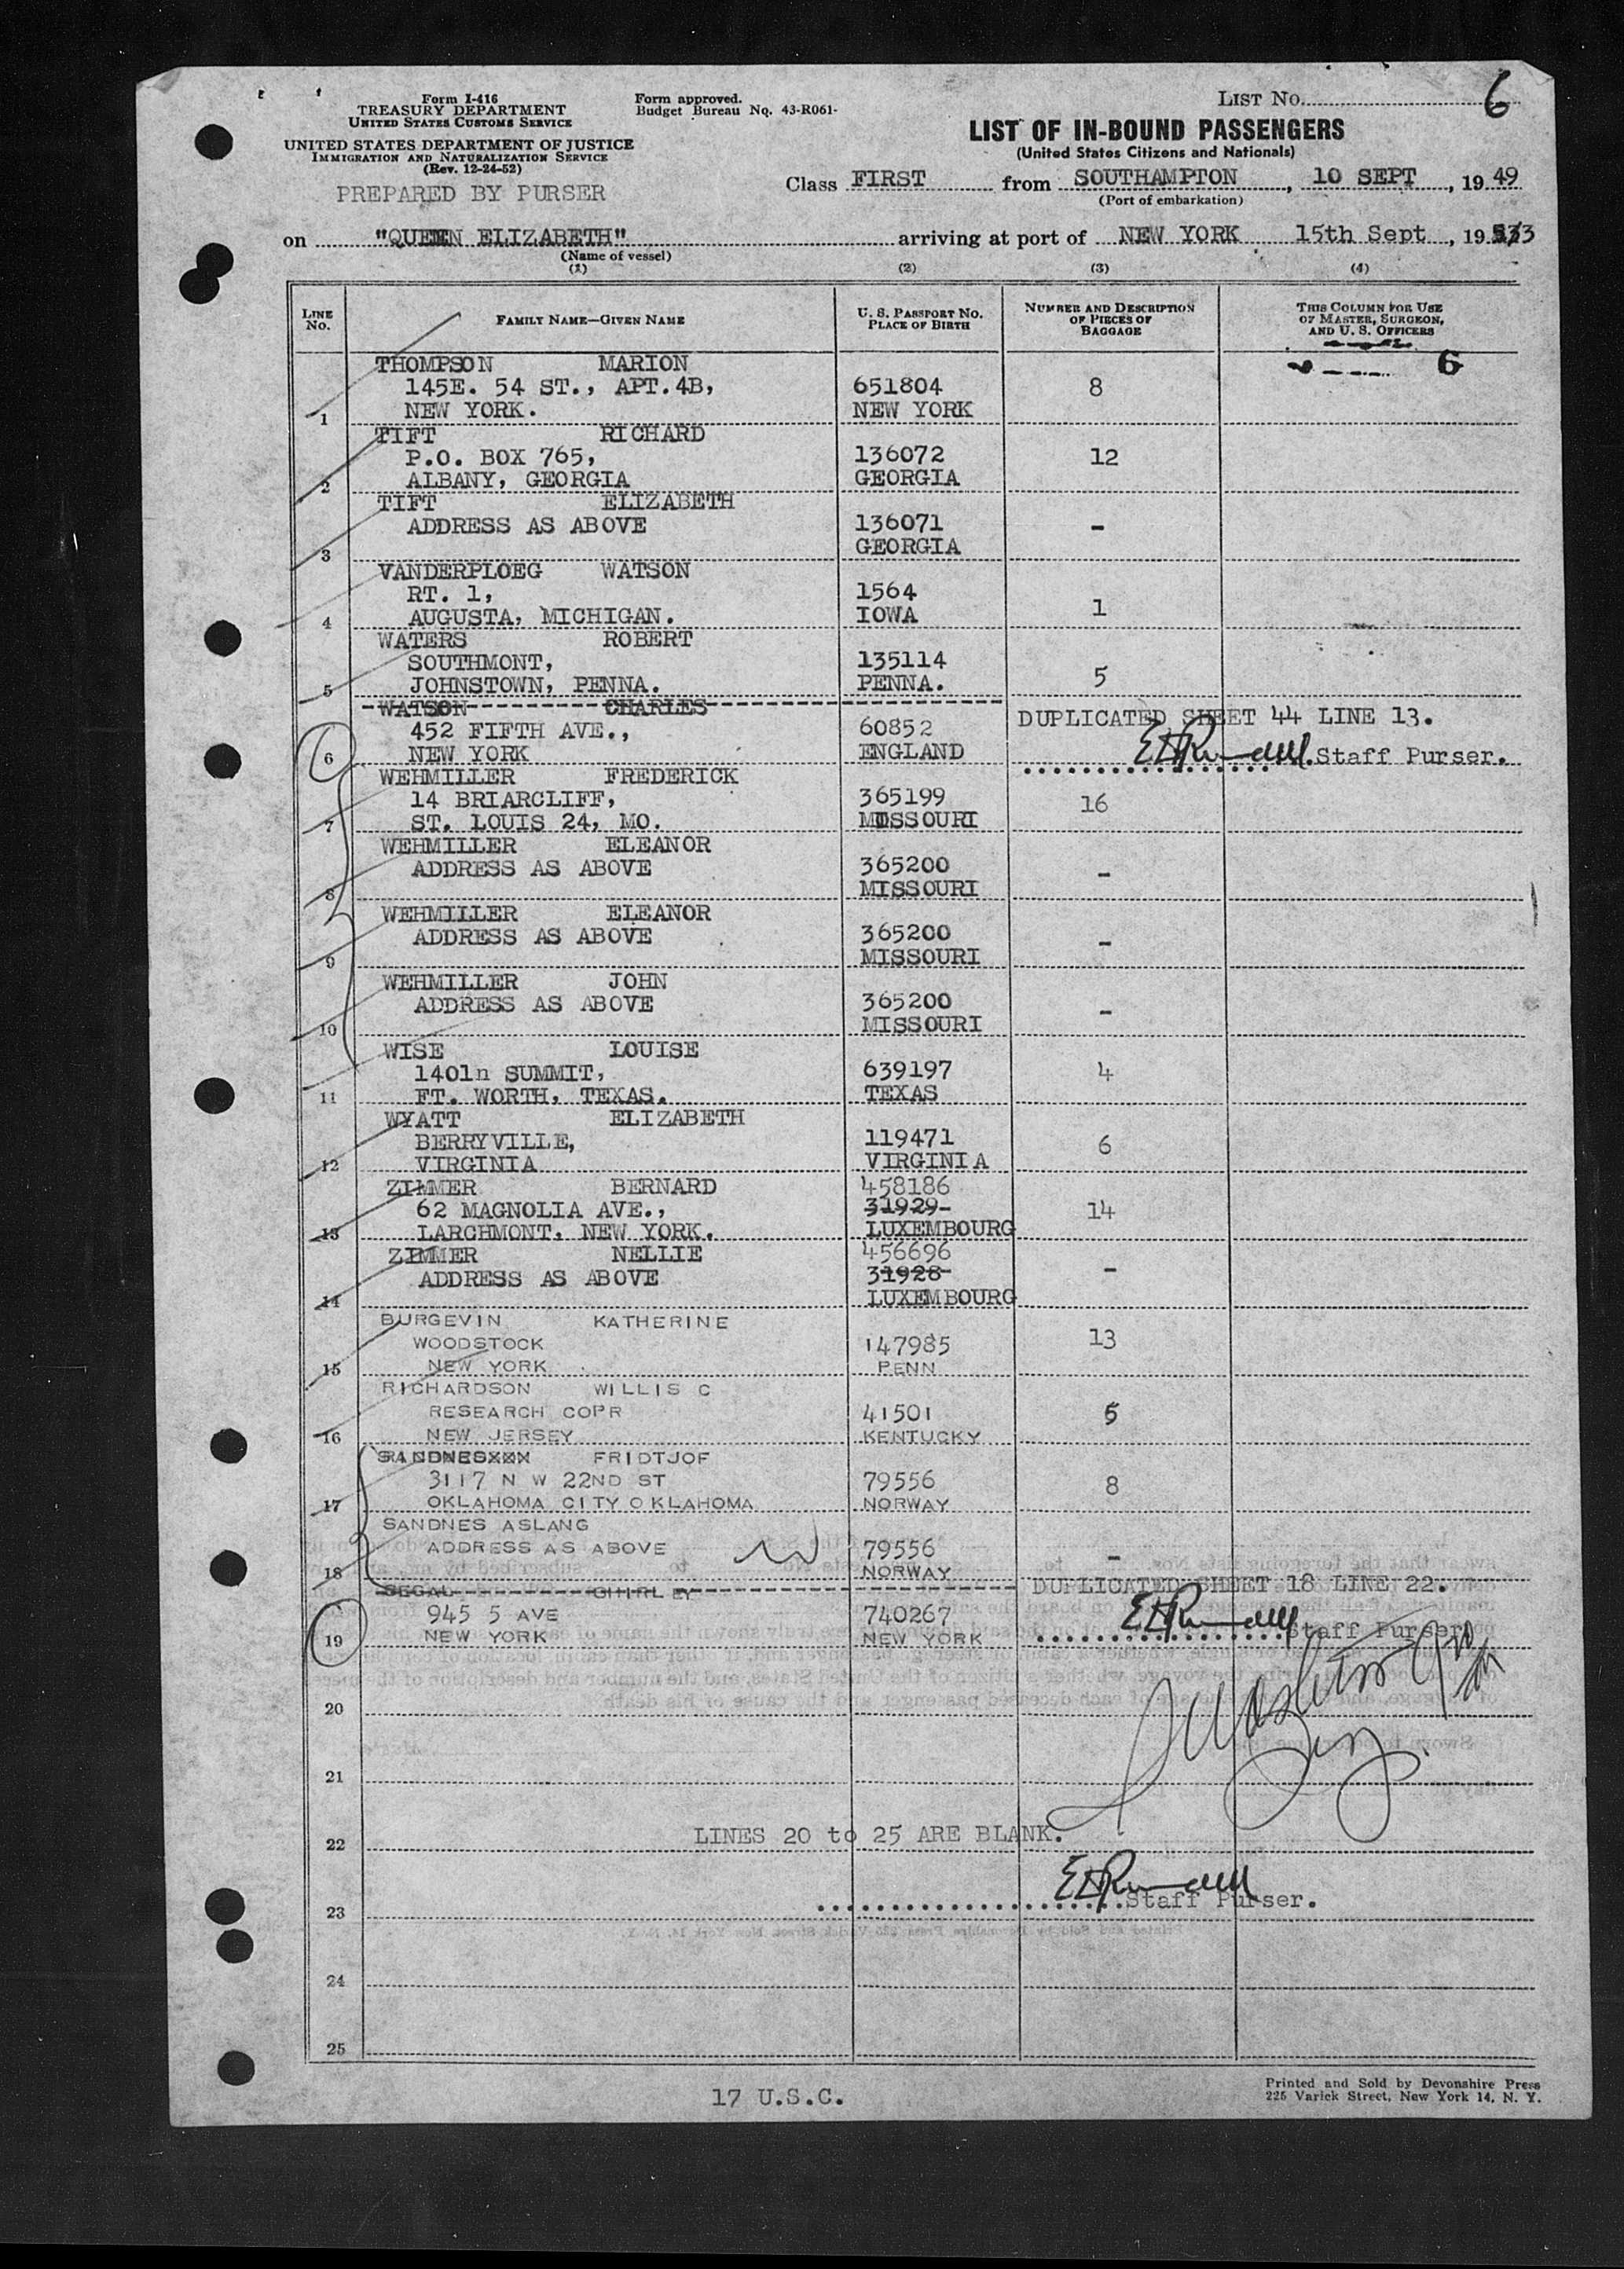 Form I-416
TREASURY DEPARTMENT
UNITED STATES CUSTOMS SERVICE
UNITED STATES DEPARTMENT OF JUSTICE
IMMIGRATION AND NATURALIZATION SERVICE
(Rev. 12-24-52)
PREPARED BY PURSER
Form approved.
Budget Bureau No. 43-R061-
LIST NO. 6
LIST OF IN-BOUND PASSENGERS
(United States Citizens and Nationals)
Class FIRST from SOUTHAMPTON, 10 SEPT, 19 49
(Port of embarkation)
on "QUEEN ELIZABETH" arriving at port of NEW YORK 15th Sept, 19
(Name of vessel)
(1) (2) (3) (4)
LINE NO. FAMILY NAME—GIVEN NAME U. S. PASSPORT NO. PLACE OF BIRTH NUMBER AND DESCRIPTION OF PIECES OF BAGGAGE THIS COLUMN FOR USE OF MASTER, SURGEON, AND U. S. OFFICERS
6
THOMPSON MARION
145E. 54 ST., APT.4B, 651804 8
1 NEW YORK. NEW YORK
TIFT RICHARD
P.O. BOX 765, 136072 12
2 ALBANY, GEORGIA GEORGIA
TIFT ELIZABETH
ADDRESS AS ABOVE 136071 -
3 GEORGIA
VANDERPLOEG WATSON
RT. 1, 1564 1
4 AUGUSTA, MICHIGAN. IOWA
WATERS ROBERT
SOUTHMONT, 135114 5
5 JOHNSTOWN, PENNA. PENNA.
WATSON CHARLES
452 FIFTH AVE., 60852 DUPLICATED SHEET 44 LINE 13.
6 NEW YORK ENGLAND Staff Purser.
WEHMILLER FREDERICK
14 BRIARCLIFF, 365199 16
7 ST. LOUIS 24, MO. MISSOURI
WEHMILLER ELEANOR
ADDRESS AS ABOVE 365200 -
8 MISSOURI
WEHMILLER ELEANOR
ADDRESS AS ABOVE 365200 -
9 MISSOURI
WEHMILLER JOHN
ADDRESS AS ABOVE 365200 -
10 MISSOURI
WISE LOUISE
1401n SUMMIT, 639197 4
11 FT. WORTH, TEXAS. TEXAS
WYATT ELIZABETH
BERRYVILLE, 119471 6
12 VIRGINIA VIRGINIA
ZIMMER BERNARD 458186
62 MAGNOLIA AVE., 31929 14
13 LARCHMONT, NEW YORK. LUXEMBOURG
ZIMMER NELLIE 456696
ADDRESS AS ABOVE 31928 -
14 LUXEMBOURG
BURGEVIN KATHERINE
WOODSTOCK 147985 13
15 NEW YORK PENN
RICHARDSON WILLIS C
RESEARCH COPR 41501 5
16 NEW JERSEY KENTUCKY
FRIDTJOF
3117 N W 22ND ST 79556 8
17 OKLAHOMA CITY OKLAHOMA NORWAY
SANDNES ASLANG
ADDRESS AS ABOVE 79556 -
18 NORWAY
SEGAL SHIRLEY DUPLICATED SHEET 18 LINE 22.
945 5 AVE 740267
19 NEW YORK NEW YORK Staff Purser
20
21
22 LINES 20 to 25 ARE BLANK.
23 Staff Purser.
24
25
17 U.S.C.
Printed and Sold by Devonshire Press
225 Varick Street, New York 14, N. Y.